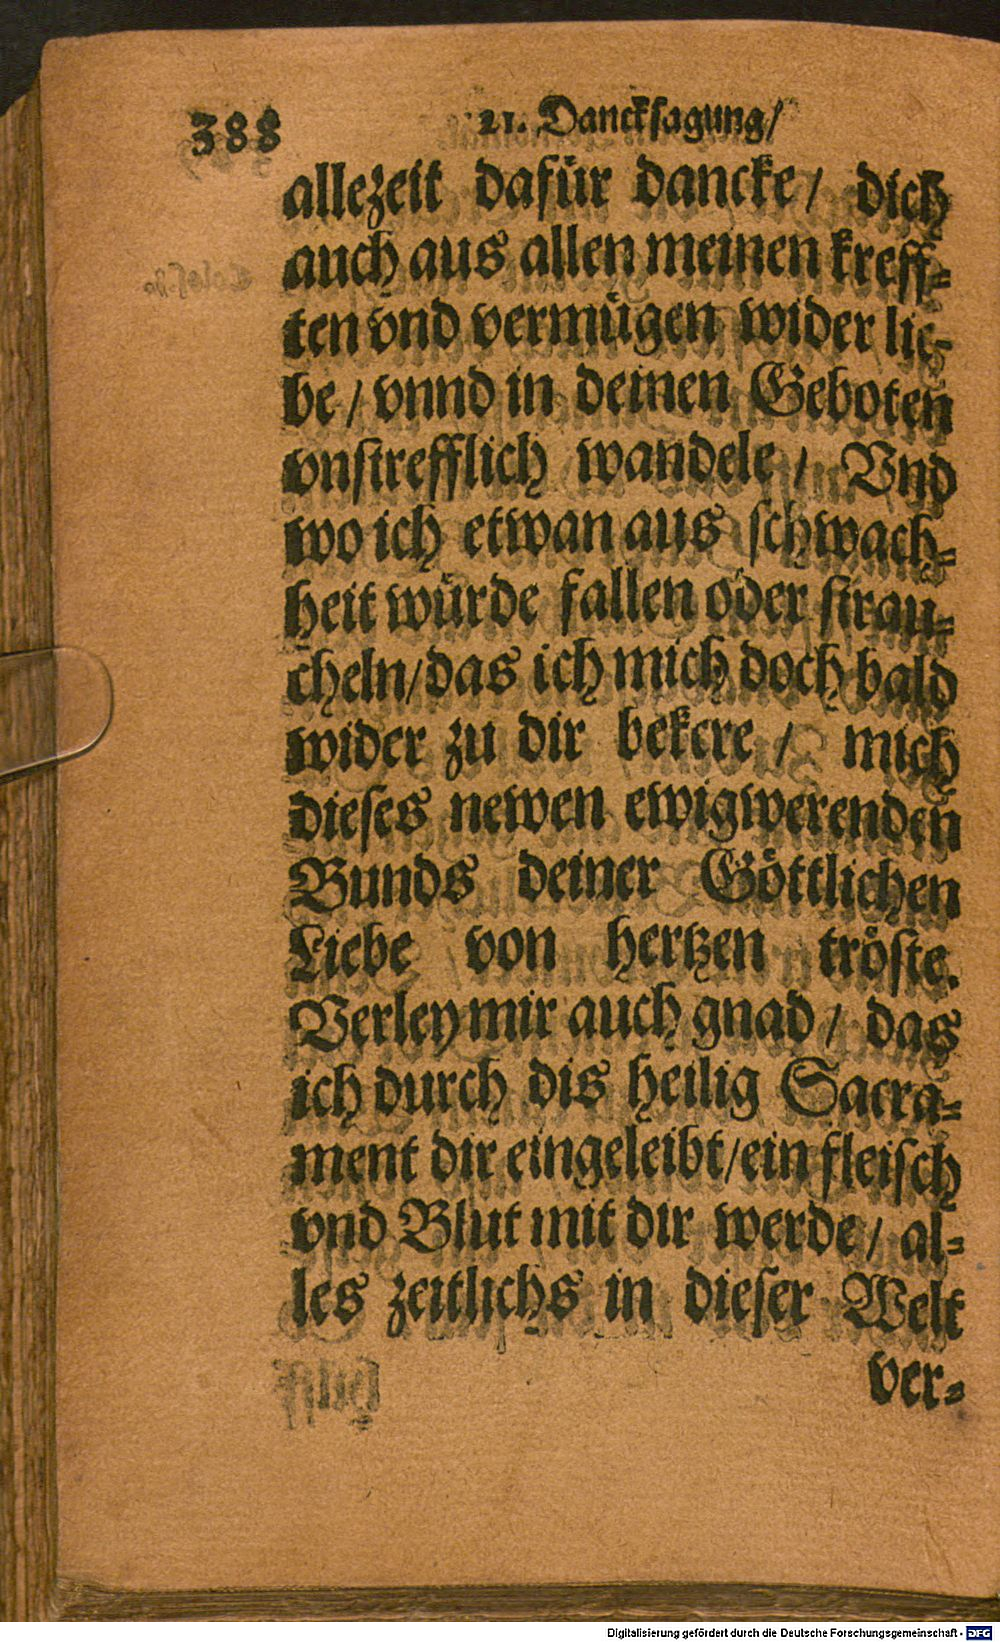 388
21. Dancksagung/
allezeit dafür dancke / dich
auch aus allen meinen kreff-
ten vnd vermügen wider lie-
be / vnnd in deinen Geboten
vnstrefflich wandele / Vnd
wo ich etwan aus schwach-
heit würde fallen oder strau-
cheln / das ich mich doch bald
wider zu dir bekere / mich
dieses newen ewigwerenden
Bunds deiner Göttlichen
Liebe von hertzen tröste.
Verley mir auch gnad / das
ich durch dis heilig Sacra-
ment dir eingeleibt / ein fleisch
vnd Blut mit dir werde / al-
les zeitlichs in dieser Welt
ver-
Digitalisierung gefördert durch die Deutsche Forschungsgemeinschaft - DFG